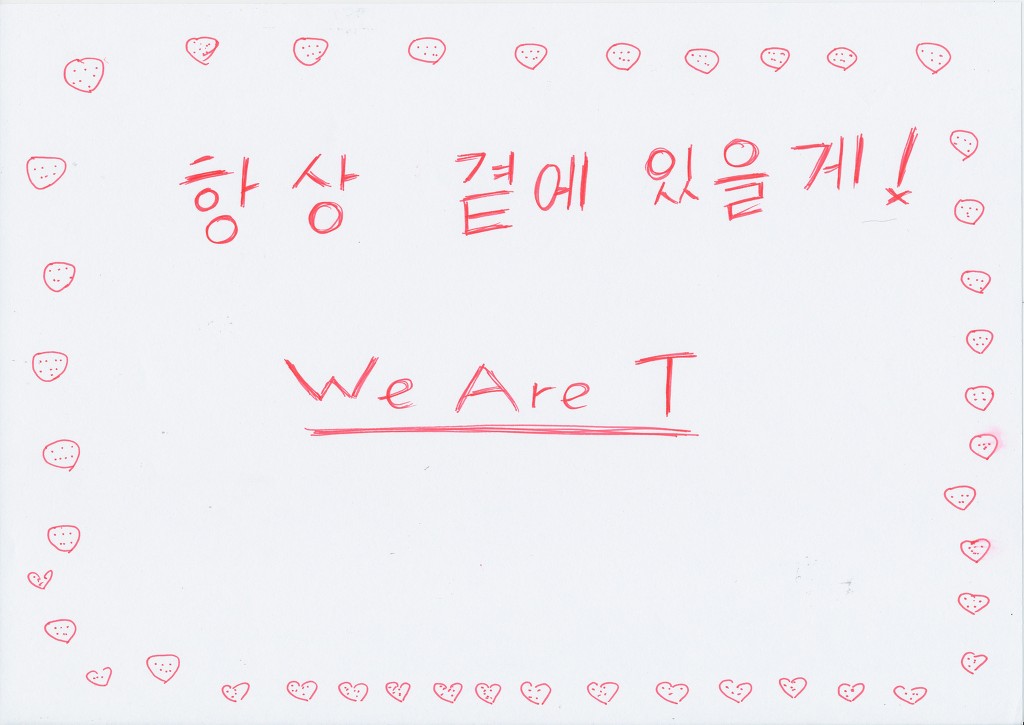 항상 곁에 있을게!
We Are T